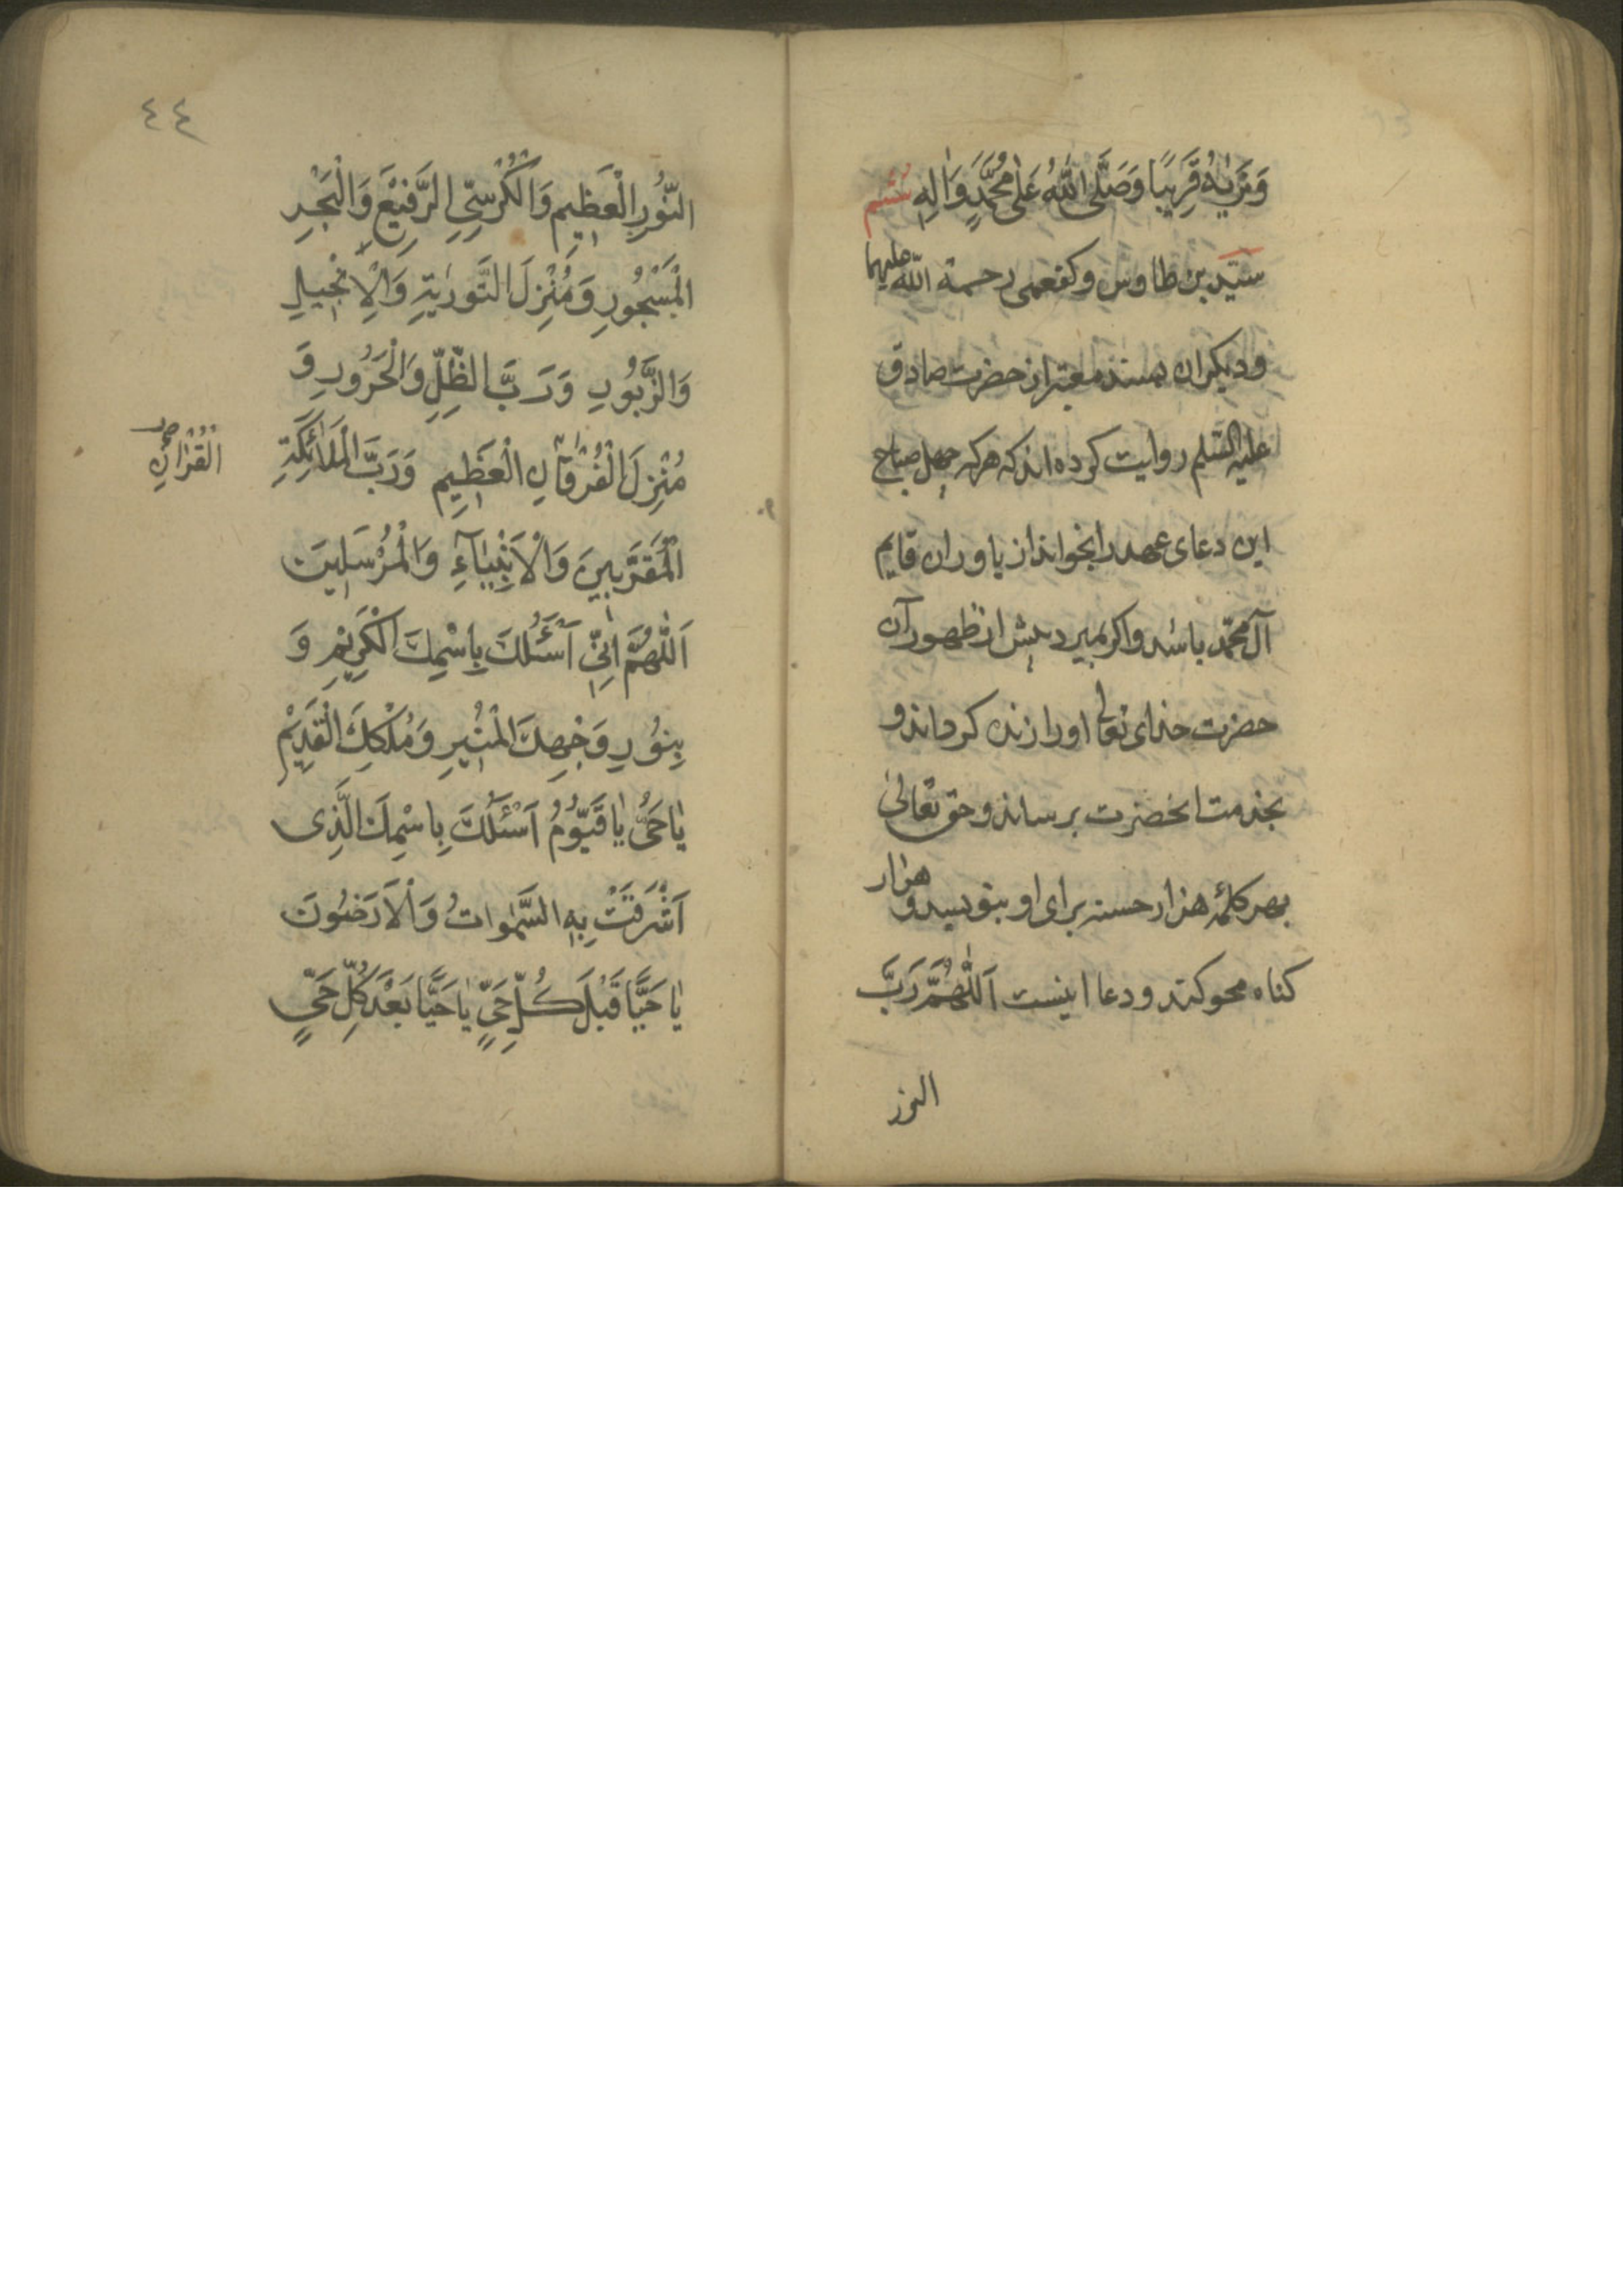 وَنَرٰیهُ قَرِیبًا وَصَلَّی اللّٰهُ عَلٰی مُحَمَّدٍ وَاٰلِهِ ششم
سیّد بن طاوس وکفعمی رحمة اللّه علیهما
ودیکران بسند معتبر از حضرت صادق
علیه السّلم روایت کرده اند که هرکه چهل صباح
این دعای عهد را بخواند از یاوران قایم
آل محمّد باشد واکر بمیرد پیش از ظهور آن
حضرت خدای تعالی او را زنده کرداند و
بخدمت انحضرت برساند وحق تعالیٰ
بهر کلمه هزار حسنه برای او بنویسد و هزار
کناه محو کند ودعا اینست اَللّٰهُمَّ رَبَّ
النور
٤٤
النُّورِ الْعَظِیمِ وَالْکُرْسِیِّ الرَّفِیْعِ وَالْبَحْرِ
الْمَسْجُورِ وَمُنْزِلَ التَّورٰیةِ وَالْاِنْجِیلِ
وَالزَّبُورِ وَرَبَّ الظِّلِّ وَالْحَرُورِ وَ
مُنْزِلَ الْفُرْقٰانِ الْعَظِیمِ وَرَبَّ الْمَلٰائِکَةِ
الْقُرْاٰنِ
الْمُقَرَّبِینَ وَالْاَنْبِیٰآءِ وَالْمُرْسَلِینَ
اَللّٰهُمَّ اِنِّی اَسْئَلُكَ بِاسْمِكَ الْکَرِیْمِ وَ
بِنُورِ وَجْهِكَ الْمُنِیرِ وَمُلْکِكَ الْقَدِیْمِ
یٰا حَیُّ یٰا قَیُّومُ اَسْئَلُكَ بِاسْمِكَ الَّذِی
اَشْرَقَتْ بِهِ السَّمٰوٰاتُ وَالْاَرَضُونَ
یٰا حَیًّا قَبْلَ کُلِّ حَیٍّ یٰا حَیًّا بَعْدَ کُلِّ حَیٍّ